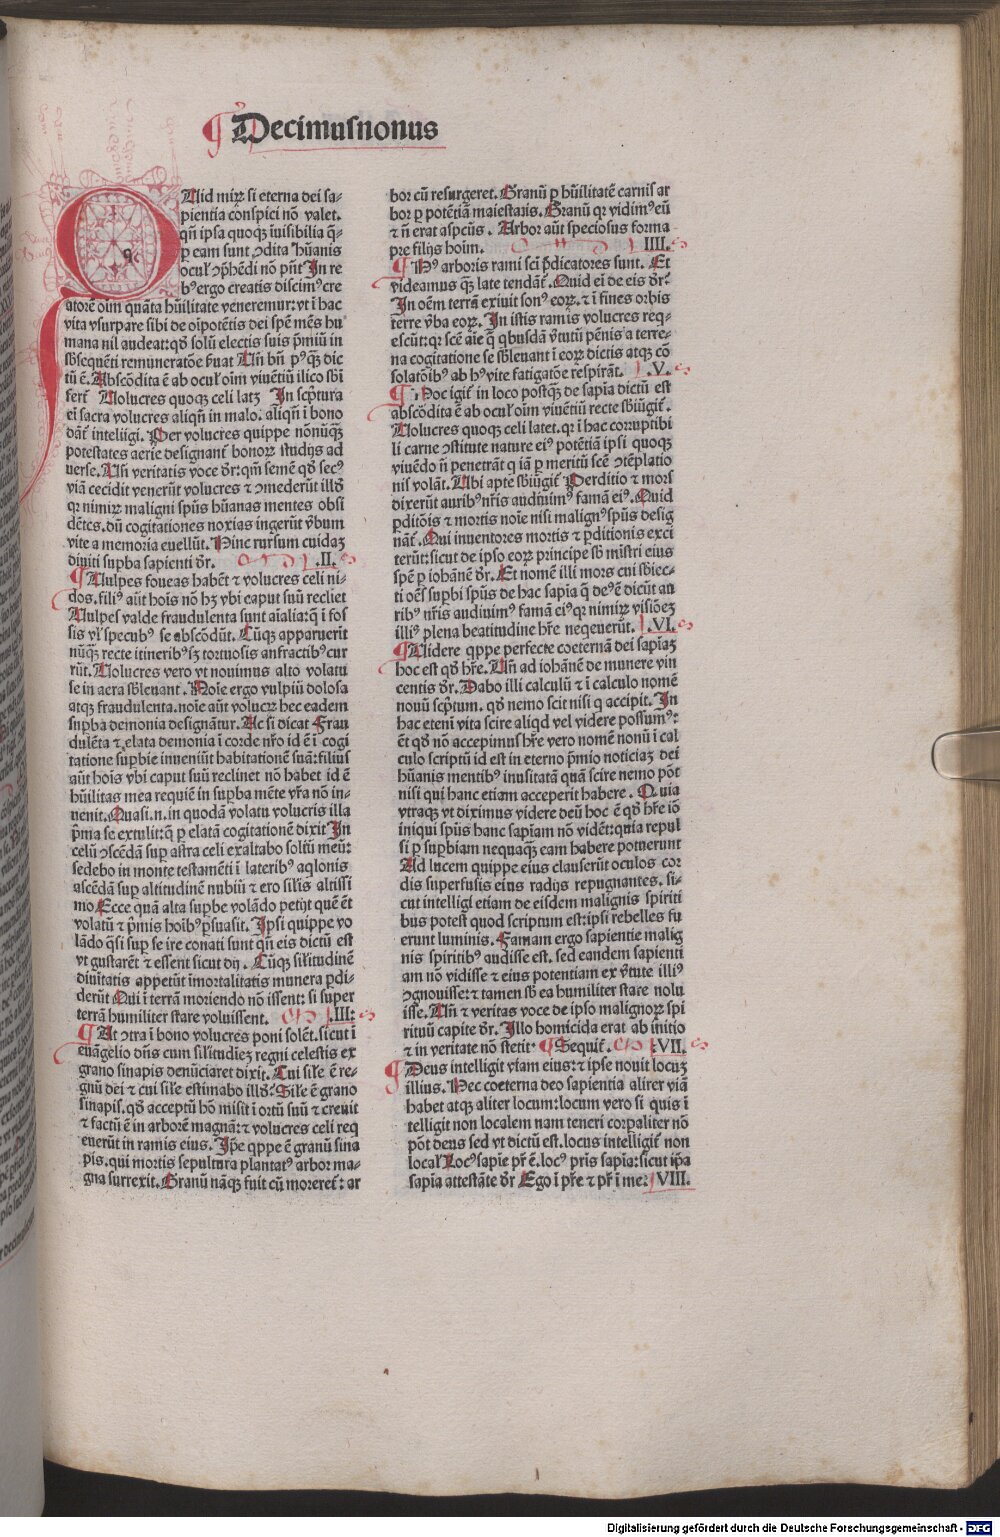 ¶ Decimusnonus
QUid mirꝝ si eterna dei sa-
pientia conspici nō valet.
qñ ipsa quoqꝫ īuisibilia q̄-
ꝑ eam sunt ꝯdita hūanis
ocul' ꝯp̄hēdi nō pn̄t In re
bꝰ ergo creatis discimꝰ cre
atorē oīm quāta hūilitate veneremur: vt ī hac
vita vsurpare sibi de oīpotētis dei spē mēs hu
mana nil audeat: qd̄ solū electis suis p̄miū in
sb̄sequēti remuneratōe ẜuat Uñ bñ pꝰqꝫ dic
tū ē. Abscōdita ē ab ocul' oīm viuētiū ilico sb̄i
fert᷑ Uolucres quoqꝫ celi latꝫ In scp̄tura
ei sacra volucres aliqñ in malo. aliqñ ī bono
dāt᷑ inteliigi. Per volucres quippe nōnūqꝫ
potestates aerie designant᷑ bonorꝝ studijs ad
uerse. Uñ veritatis voce dr̄: qm̄ semē qd̄ secꝰ
viā cecidit venerūt volucres ⁊ ꝯmederūt illd̄
qꝛ nimirꝝ maligni spūs hūanas mentes obsi
dētes. dū cogitationes noxias ingerūt v̄bum
vite a memoria euellūt. Hinc rursum cuidaꝫ
diuiti supba sapienti dr̄. .II.
¶ Uulpes foueas habēt ⁊ volucres celi ni-
dos. filiꝰ aūt hoīs nō hꝫ vbi caput suū recliet
Uulpes valde fraudulenta sunt aīalia: q̄ ī fos
sis vl' specubꝰ se abscōdūt. Cūqꝫ apparuerit
nūqꝫ recte itineribꝰ sꝫ tortuosis anfractibꝰ cur
rūt. Uolucres vero vt nouimus alto volatu
se in aera sb̄leuant. Noīe ergo vulpiū dolosa
atqꝫ fraudulenta. noīe aūt volucrꝝ hec eadem
supba demonia designātur. Ac si dicat Frau
dulēta ⁊ elata demonia ī corde nr̄o id ē ī cogi
tatione supbie inueniūt habitationē suā: filius
aūt hoīs vbi caput suū reclinet nō habet id ē
hūilitas mea requiē in supba mēte vr̄a nō in-
uenit. Quasi. n. in quodā volatu volucris illa
p̄ma se extulit: q̄ ꝑ elatā cogitationē dixit In
celū ꝯscēdā suꝑ astra celi exaltabo soliū meū:
sedebo in monte testamēti ī lateribꝰ aqlonis
ascēdā suꝑ altitudinē nubiū ⁊ ero sil̄is altissi
mo Ecce quā alta supbe volādo petijt que ēt
volatū ⁊ p̄mis hoībꝰ ꝑsuasit. Ipsi quippe vo
lādo q̄si suꝑ se ire conati sunt qñ eis dictū est
vt gustarēt ⁊ essent sicut dij. Cūqꝫ sil̄itudinē
diuītatis appetūt īmortalitatis munera ꝑdi-
derūt Qui ī terrā moriendo nō issent: si super
terrā humiliter stare voluissent. .III:
¶ At ꝯtra ī bono volucres poni solēt. sicut ī
euāgelio dn̄s cum sil̄itudieꝫ regni celestis ex
grano sinapis denūciaret dixit. Cui sil̄e ē re-
gnū dei ⁊ cui sil̄e estimabo illd̄: Sil̄e ē grano
sinapis. qd̄ acceptū hō misit ī ortū suū ⁊ creuit
⁊ factū ē in arborē magnā: ⁊ volucres celi req
euerūt in ramis eius. Ip̄e qppe ē granū sina
pis. qui mortis sepultura plantatꝰ arbor ma-
gna surrexit. Granū nāqꝫ fuit cū moreret᷑: ar
bor cū resurgeret. Granū ꝑ hūilitatē carnis ar
bor ꝑ potētiā maiestatis. Granū qꝛ vidimꝰ eū
⁊ n̄ erat aspectꝰ. Arbor aūt speciosus forma
pre filijs hoīm. IIII.
¶ Hꝰ arboris rami sci p̄dicatores sunt. Et
videamus qꝫ late tendāt᷑. Quid ei de eis dr̄:
In oēm terrā exiuit sonꝰ eorꝝ. ⁊ ī fines orbis
terre v̄ba eorꝝ. In istis ramis volucres req-
escūt: qꝛ scē aīe q̄ qbusdā v̄tutū pēnis a terre-
na cogitatione se sb̄leuant ī eorꝝ dictis atqꝫ cō
solatōibꝰ ab hꝰ vite fatigatōe respirāt. .V.
¶ Hoc igit᷑ in loco postqꝫ de sapīa dictū est
abscōdita ē ab ocul' oīm viuētiū recte sb̄iūgit᷑.
Uolucres quoqꝫ celi latet. qꝛ ī hac corruptibi
li carne ꝯstitute nature eiꝰ potētiā ipsi quoqꝫ
viuēdo n̄ penetrāt q iā ꝑ meritū scē ꝯtēplatio
nis volāt. Ubi apte sb̄iūgit᷑ Perditio ⁊ mors
dixerūt auribꝰ nr̄is audiuimꝰ famā eiꝰ. Quid
ꝑditōis ⁊ mortis noīe nisi malignꝰ spūs desig
nāt᷑. Qui inuentores mortis ⁊ ꝑditionis exci
terūt: sicut de ipso eorꝝ principe sb̄ mīstri eius
spē ꝑ iohānē dr̄. Et nomē illi mors cui sb̄iec-
ti oēs supbi spūs de hac sapīa q̄ deꝰ ē dicūt au
ribꝰ nr̄is audiuimꝰ famā eiꝰ qꝛ nimirꝝ visiōeꝫ
illiꝰ plena beatitudine hr̄e neqeuerūt. .VI.
¶ Uidere qppe perfecte coeternā dei sapīaꝫ
hoc est qd̄ hr̄e. Uñ ad iohānē de munere vin
centis dr̄. Dabo illi calculū ⁊ ī calculo nomē
nouū scp̄tum. qd̄ nemo scit nisi q accipit. In
hac etenī vita scire aliqd vel videre possumꝰ:
ēt qd̄ nō accepimus hr̄e vero nomē nonū ī cal
culo scriptū id est in eterno p̄mio noticiaꝫ dei
hūanis mentibꝰ inusitatā quā scire nemo pōt
nisi qui hanc etiam acceperit habere. Quia
vtraqꝫ vt diximus videre deū hoc ē qd̄ hr̄e iō
iniqui spūs hanc sapīam nō vidēt: quia repul
si ꝑ supbiam nequaqꝫ eam habere potuerunt
Ad lucem quippe eius clauserūt oculos cor
dis superfusis eius radijs repugnantes. si-
cut intelligi etiam de eisdem malignis spiriti
bus potest quod scriptum est: ipsi rebelles fu
erunt luminis. Famam ergo sapientie malig
nis spiritibꝰ audisse est. sed eandem sapienti
am nō vidisse ⁊ eius potentiam ex v̄tute illiꝰ
ꝯgnouisse: ⁊ tamen sb̄ ea humiliter stare nolu
isse. Uñ ⁊ veritas voce de ipso malignorꝝ spi
rituū capite dr̄. Illo homicida erat ab initio
⁊ in veritate nō stetit ¶ Sequit᷑. :VII.
¶ Deus intelligit viam eius: ⁊ ipse nouit locuꝫ
illius. Nec coeterna deo sapientia aliter viā
habet atqꝫ aliter locum: locum vero si quis ī
telligit non localem nam teneri corꝑaliter nō
pōt deus sed vt dictū est. locus intelligit᷑ non
local' Locꝰ sapīe pr̄ ē. locꝰ pris sapīa: sicut ip̄a
sapīa attestāte dr̄ Ego ī pr̄e ⁊ pr̄ ī me: VIII.
Digitalisierung gefördert durch die Deutsche Forschungsgemeinschaft - DFG